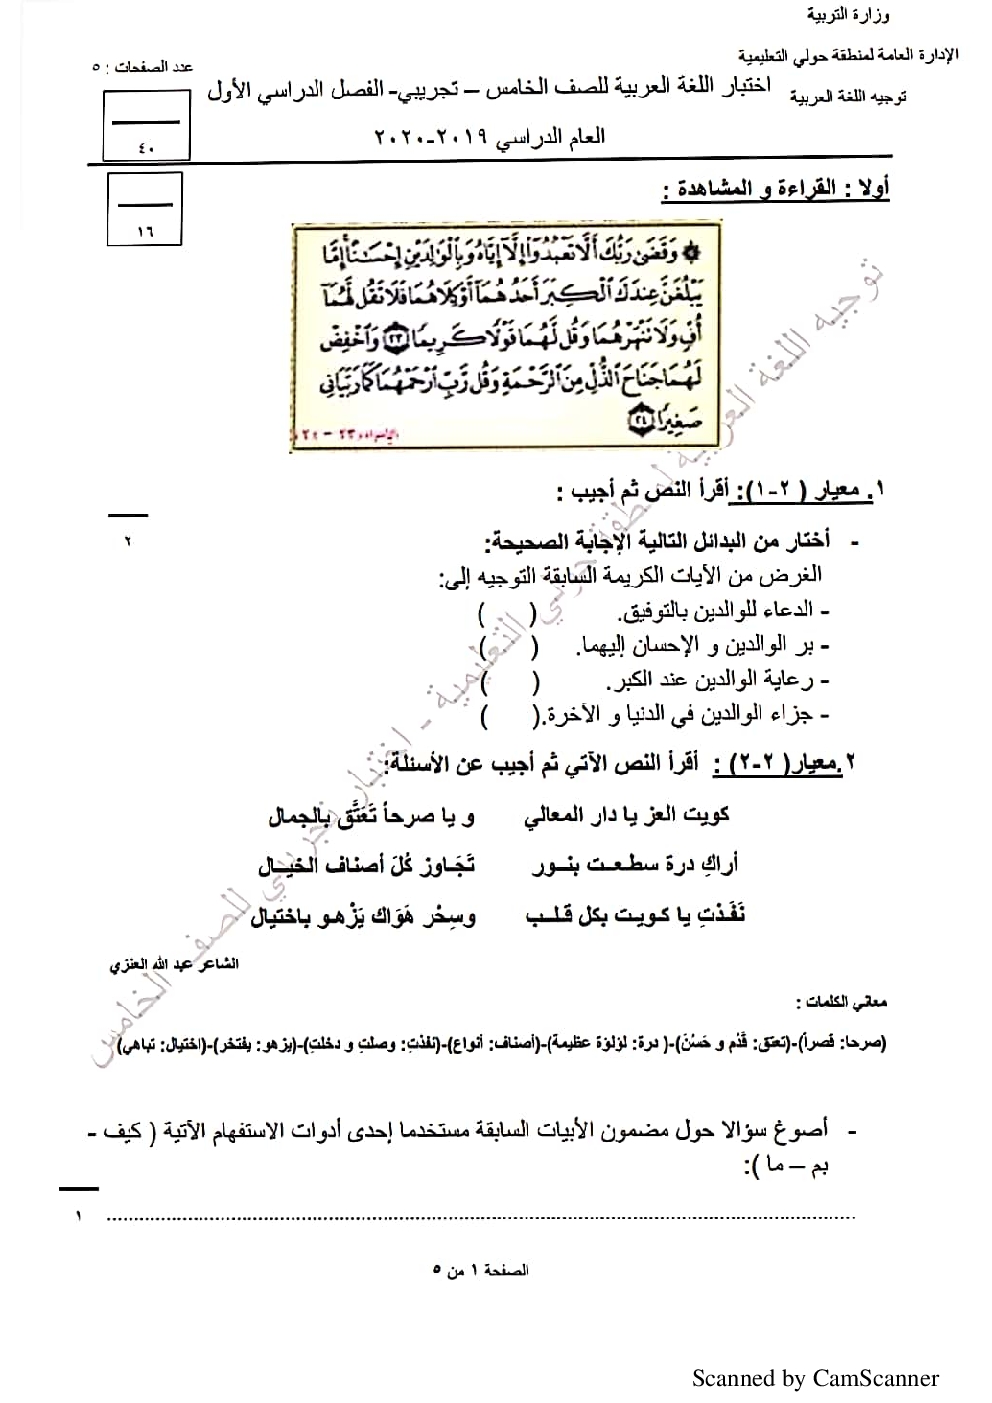 وزارة التربية
الإدارة العامة لمنطقة حولي التعليمية
توجيه اللغة العربية
عدد الصفحات : ٥
اختبار اللغة العربية للصف الخامس – تجريبي- الفصل الدراسي الأول
العام الدراسي ٢٠١٩-٢٠٢٠
٤٠
أولا : القراءة و المشاهدة :
١٦
۞ وَقَضَىٰ رَبُّكَ أَلَّا تَعْبُدُوٓا۟ إِلَّآ إِيَّاهُ وَبِٱلْوَٰلِدَيْنِ إِحْسَٰنًا إِمَّا
يَبْلُغَنَّ عِندَكَ ٱلْكِبَرَ أَحَدُهُمَآ أَوْ كِلَاهُمَا فَلَا تَقُل لَّهُمَآ
أُفٍّ وَلَا تَنْهَرْهُمَا وَقُل لَّهُمَا قَوْلًا كَرِيمًا ٢٣ وَٱخْفِضْ
لَهُمَا جَنَاحَ ٱلذُّلِّ مِنَ ٱلرَّحْمَةِ وَقُل رَّبِّ ٱرْحَمْهُمَا كَمَا رَبَّيَانِى
صَغِيرًا ٢٤
الإسراء ٢٣ – ٢٤
١. معيار ( ٢-١): أقرأ النص ثم أجيب :
٢
- أختار من البدائل التالية الإجابة الصحيحة:
الغرض من الآيات الكريمة السابقة التوجيه إلى:
- الدعاء للوالدين بالتوفيق. ( )
- بر الوالدين و الإحسان إليهما. ( )
- رعاية الوالدين عند الكبر. ( )
- جزاء الوالدين في الدنيا و الآخرة.( )
٢.معيار( ٢-٢) : أقرأ النص الآتي ثم أجيب عن الأسئلة:
كويت العز يا دار المعالي و يا صرحاً تَعَتَّق بالجمال
أراكِ درة سطعت بنور تَجَاوز كُلَ أصناف الخيال
نَفَذتِ يا كويت بكل قلب وسِحْر هَوَاك يَزْهو باختيال
الشاعر عبد الله العنزي
معاني الكلمات :
(صرحا: قصراً)-(تعتق: قَدُم و حَسُنَ)-( درة: لؤلؤة عظيمة)-(أصناف: أنواع)-(نفذتِ: وصلتِ و دخلتِ)-(يزهو: يفتخر)-(اختيال: تباهي)
- أصوغ سؤالا حول مضمون الأبيات السابقة مستخدما إحدى أدوات الاستفهام الآتية ( كيف -
بم – ما ):
١ ........................................................................
الصفحة ١ من ٥
توجيه اللغة العربية لمنطقة حولي التعليمية - اختبار تجريبي للصف الخامس
Scanned by CamScanner